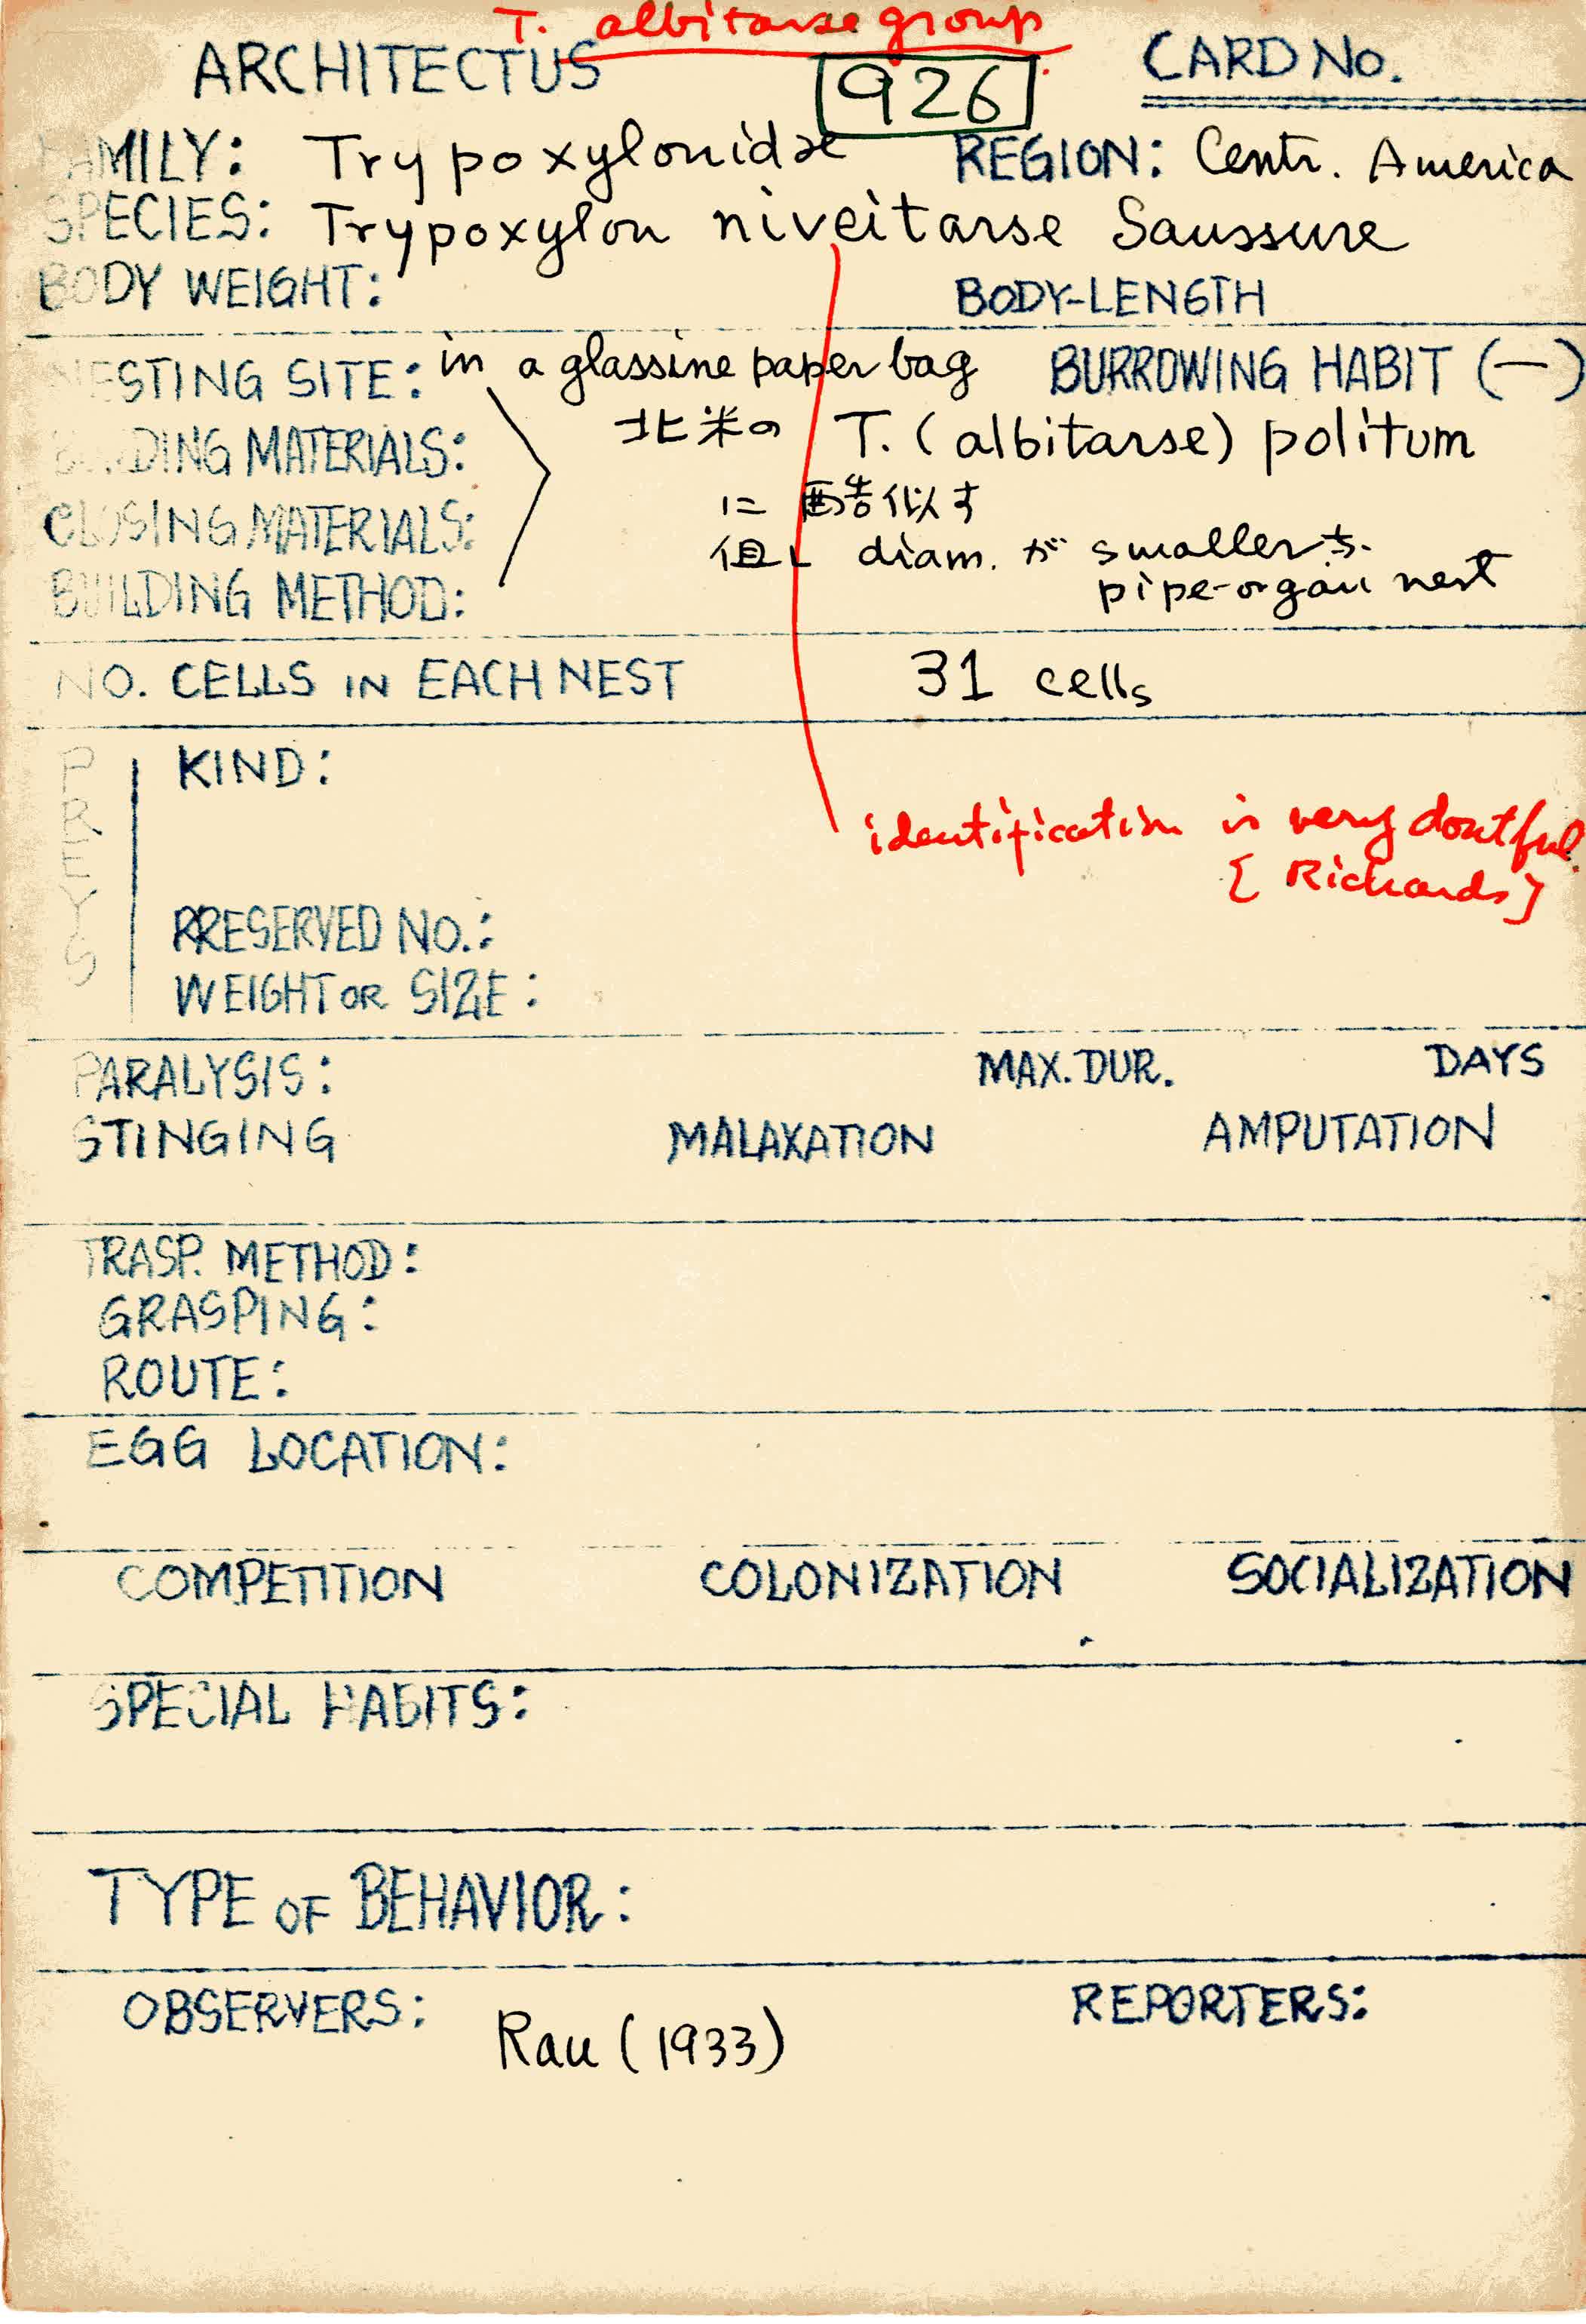 T. albitarse group
ARCHITECTUS 926 CARD NO.
FAMILY: Trypoxylonidae REGION: Centr. America
SPECIES: Trypoxylon niveitarse Saussure
BODY WEIGHT: BODY-LENGTH
NESTING SITE: in a glassine paper bag BURROWING HABIT (-)
BUILDING MATERIALS: 北米の T. (albitarse) politum
CLOSING MATERIALS: に酷似す
但し diam. が smaller
BUILDING METHOD: pipe-organ nest
NO. CELLS IN EACH NEST 31 cells
PREYS
KIND:
identification is very doutful
[Richards]
PRESERVED NO.:
WEIGHT OR SIZE:
PARALYSIS: MAX. DUR. DAYS
STINGING MALAXATION AMPUTATION
TRASP. METHOD:
GRASPING:
ROUTE:
EGG LOCATION:
COMPETITION COLONIZATION SOCIALIZATION
SPECIAL HABITS:
TYPE OF BEHAVIOR:
OBSERVERS: Rau (1933) REPORTERS: